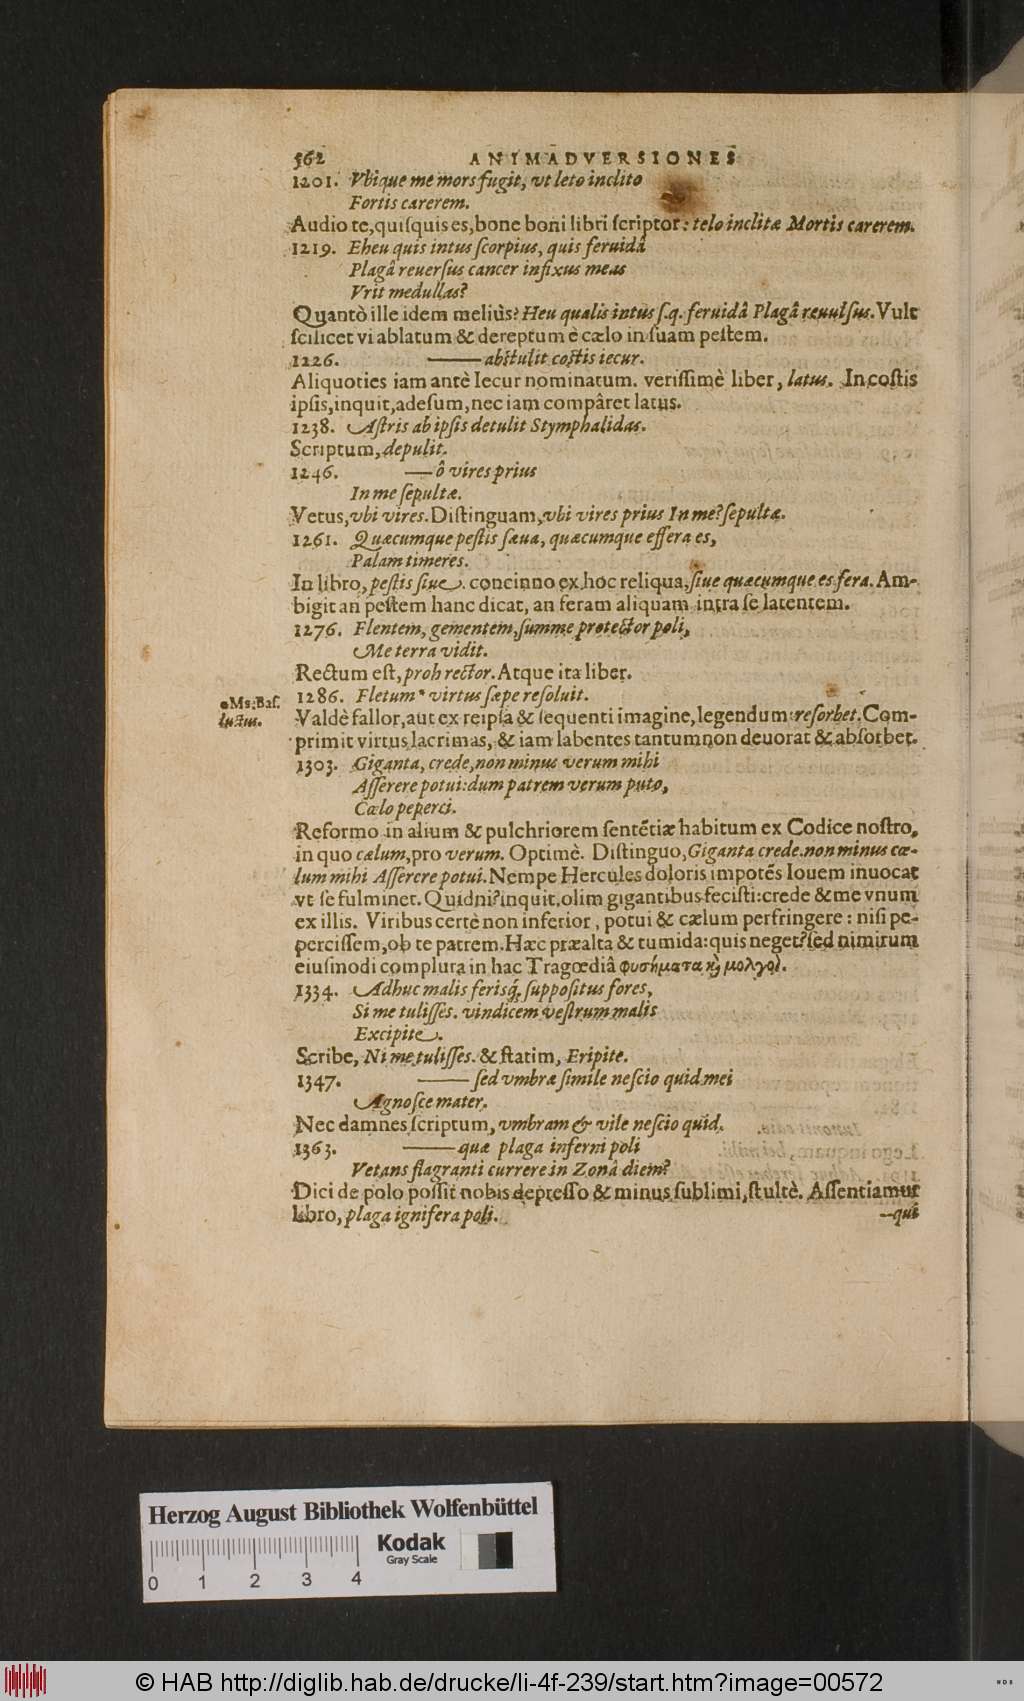 562 ANIMADVERSIONES
1201. Vbique me mors fugit, vt leto inclito
Fortis carerem.
Audio te,quiſquis es,bone boni libri ſcriptor: telo inclitæ Mortis carerem.
1219. Eheu quis intus ſcorpius, quis feruidâ
Plagâ reuerſus cancer infixus meas
Vrit medullas?
Quantò ille idem meliùs? Heu qualis intus ſ.q. feruidâ Plagâ reuulſus. Vult
ſcilicet vi ablatum & dereptum è cælo in ſuam peſtem.
1226. ——abſtulit coſtis iecur.
Aliquoties iam antè Iecur nominatum. veriſſimè liber, latus. In coſtis
ipſis,inquit,adeſum,nec iam compâret latus.
1238. Aſtris ab ipſis detulit Stymphalidas.
Scriptum, depulit.
1246. —ô vires prius
In me ſepultæ.
Vetus, vbi vires. Diſtinguam, vbi vires prius In me? ſepultæ.
1261. Quæcumque peſtis ſæua, quæcumque effera es,
Palam timeres.
In libro, peſtis ſiue. concinno ex hoc reliqua, ſiue quæcumque es fera. Am-
bigit an peſtem hanc dicat, an feram aliquam intra ſe latentem.
1276. Flentem, gementem, ſumme protector poli,
Me terra vidit.
Rectum eſt, proh rector. Atque ita liber.
1286. Fletum* virtus ſæpe reſoluit.
•Ms. Baſ.
luctus.
Valdè fallor,aut ex reipſa & ſequenti imagine,legendum: reſorbet. Com-
primit virtus lacrimas, & iam labentes tantum non deuorat & abſorbet.
1303. Giganta, crede, non minus verum mihi
Aſſerere potui: dum patrem verum puto,
Cælo peperci.
Reformo in alium & pulchriorem ſentētiæ habitum ex Codice noſtro,
in quo cælum, pro verum. Optimè. Diſtinguo, Giganta crede. non minus cæ-
lum mihi Aſſerere potui. Nempe Hercules doloris impotēs Iouem inuocat
vt ſe fulminet. Quidni? inquit,olim gigantibus feciſti: crede & me vnum
ex illis. Viribus certè non inferior, potui & cælum perfringere: niſi pe-
perciſſem,ob te patrem. Hæc præalta & tumida: quis neget? ſed nimirum
eiuſmodi complura in hac Tragœdiâ φυσήματα κ̀ μολγοὶ.
1334. Adhuc malis feriſq́; ſuppoſitus fores,
Si me tuliſſes. vindicem veſtrum malis
Excipite.
Scribe, Ni me tuliſſes. & ſtatim, Eripite.
1347. ——ſed vmbræ ſimile neſcio quid mei
Agnoſce mater.
Nec damnes ſcriptum, vmbram & vile neſcio quid.
1363. ——quæ plaga inferni poli
Vetans flagranti currere in Zonâ diem?
Dici de polo poſſit nobis depreſſo & minus ſublimi, ſtultè. Aſſentiamur
libro, plaga ignifera poli.
--qui
Herzog August Bibliothek Wolfenbüttel
Kodak
Gray Scale
0 1 2 3 4
© HAB http://diglib.hab.de/drucke/li-4f-239/start.htm?image=00572